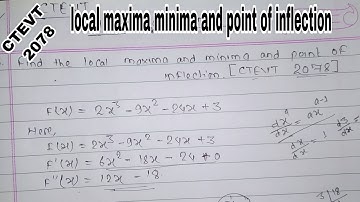 CTEVT
2078
local maxima minima and point of inflection
Find the local maxima and minima and point of
inflection. [CTEVT 2078]
F(x) = 2x³ - 9x² - 24x + 3
Here,
f(x) = 2x³ - 9x² - 24x + 3
F'(x) = 6x² - 18x - 24 + 0
F''(x) = 12x - 18
dx^n/dx = nx^n-1
dx/dx = 1
d3/dx